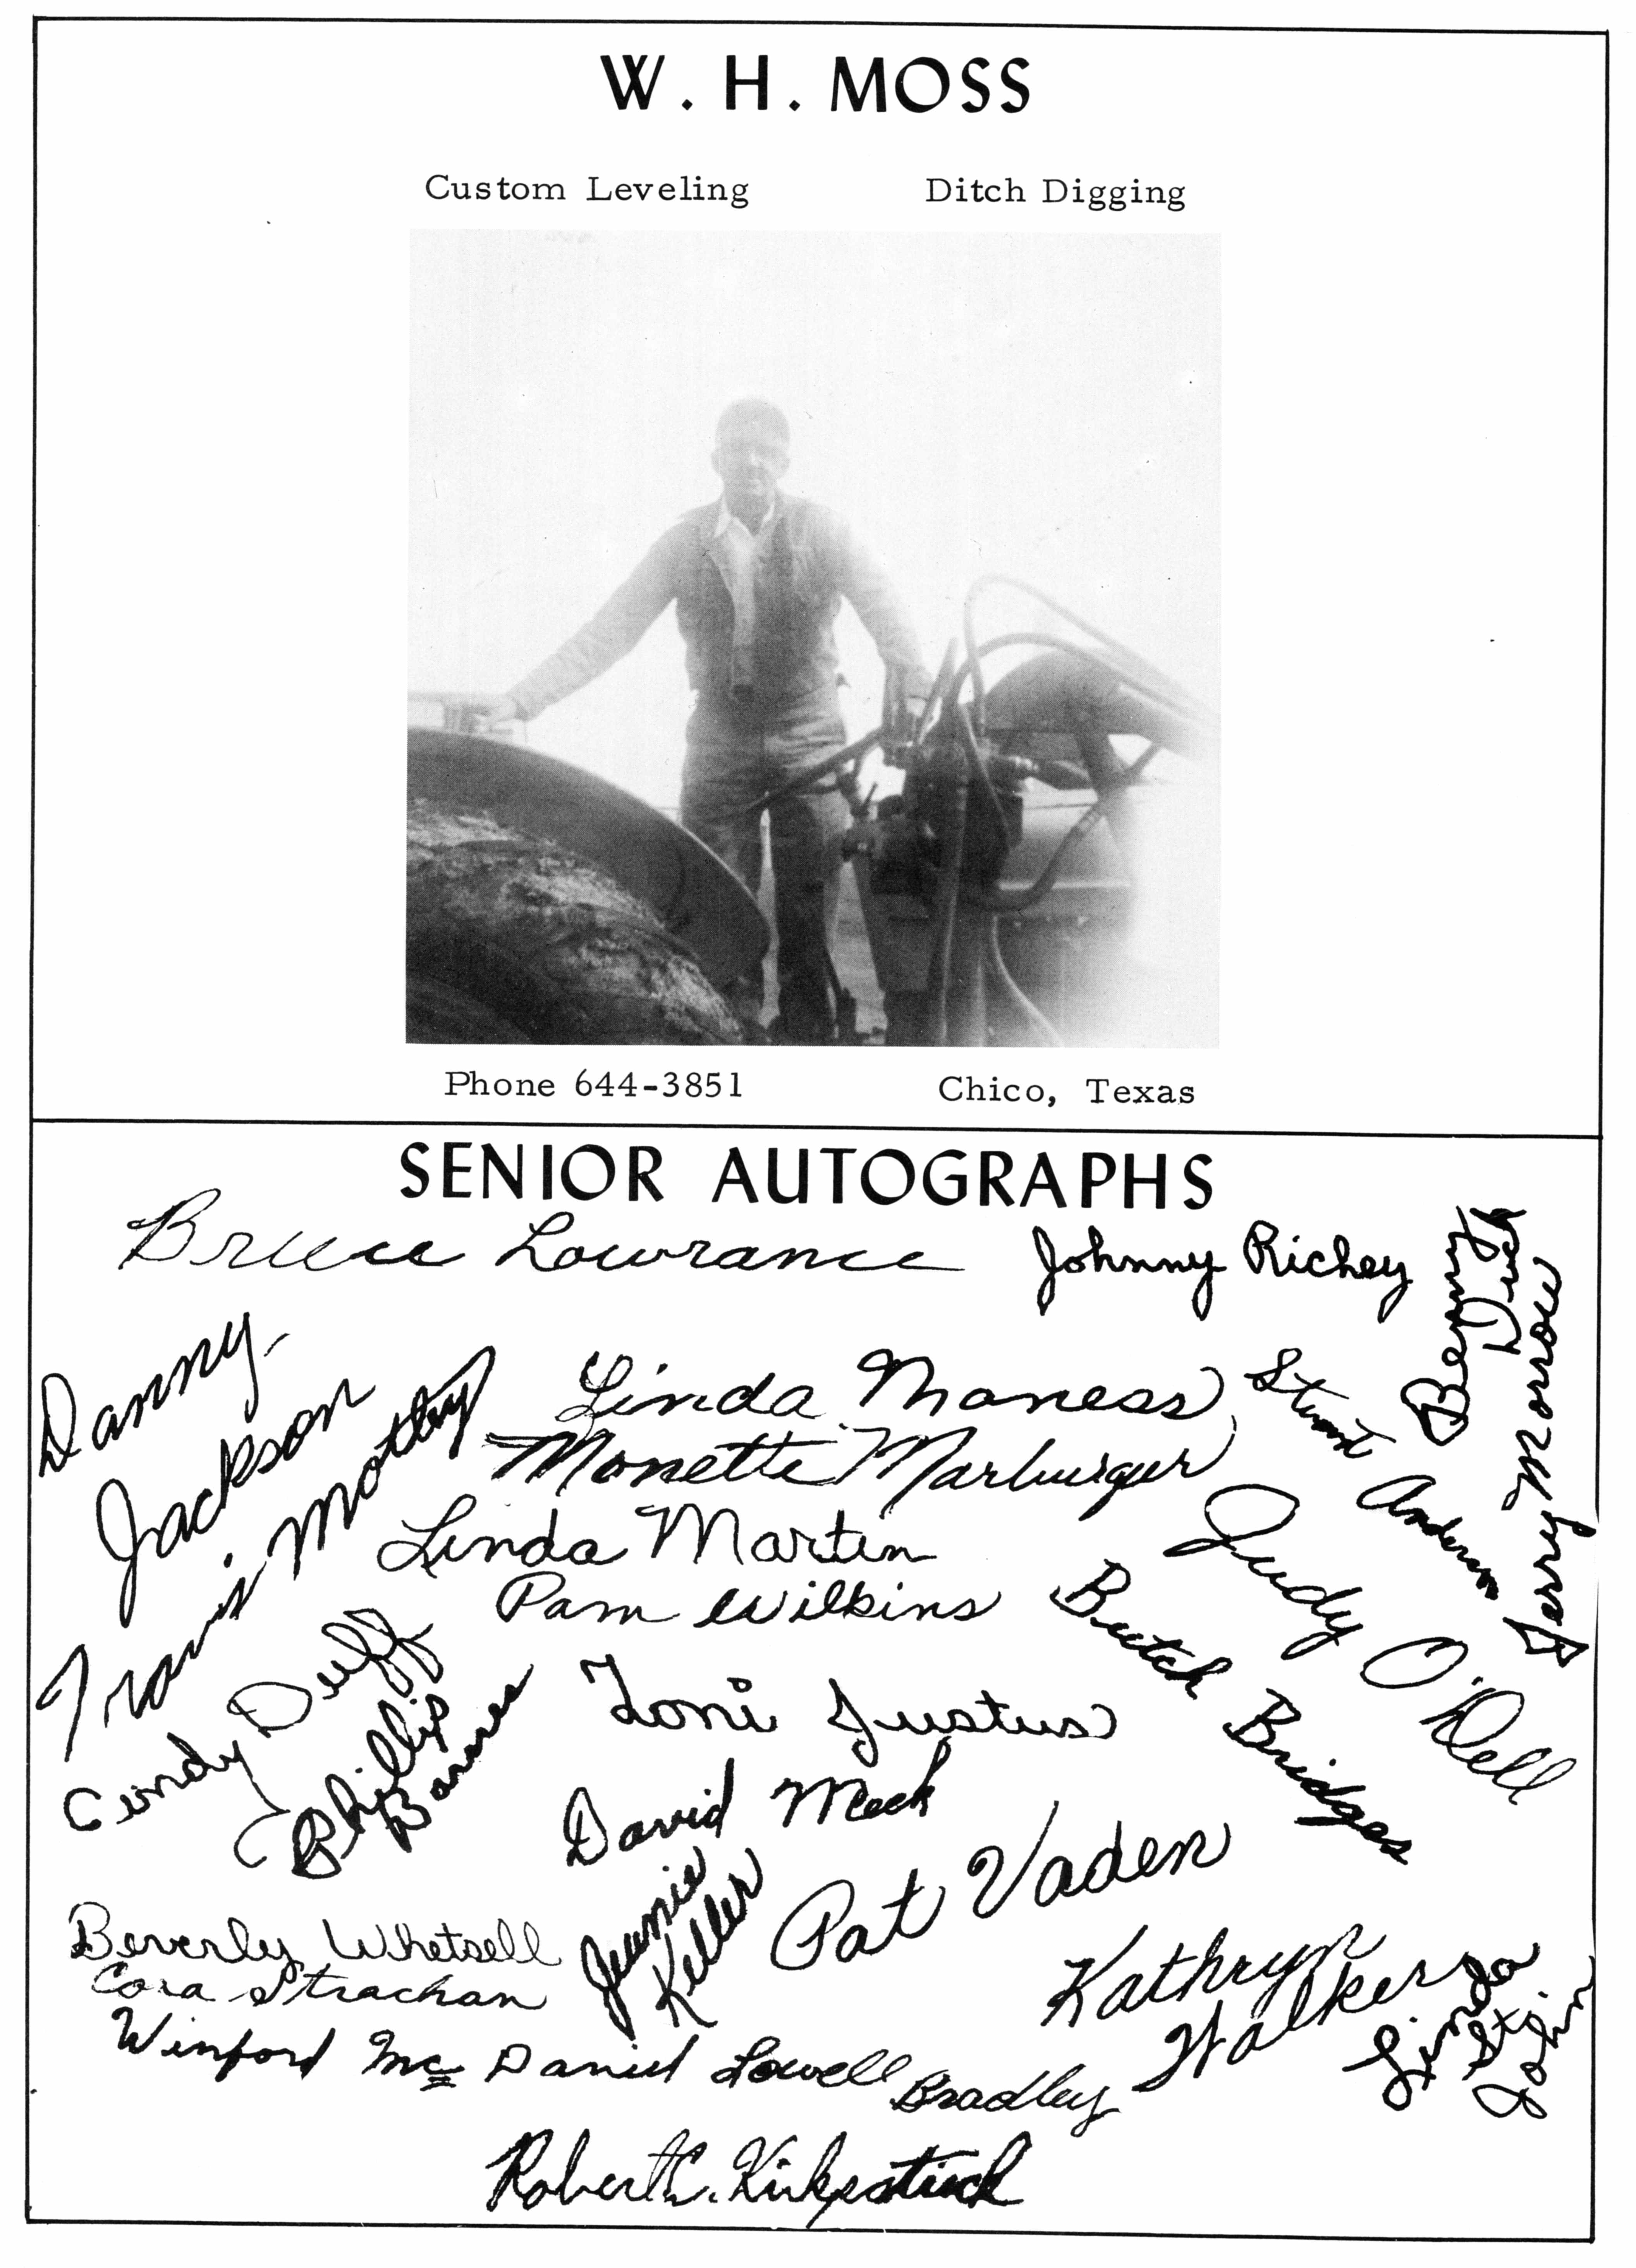 W. H. MOSS
Custom Leveling Ditch Digging
Phone 644-3851 Chico, Texas
SENIOR AUTOGRAPHS
Bruce Lowrance
Johnny Richey
Benny Duff
Jerry Morrow
Danny Jackson
Travis Motley
Linda Maness
Stuart Anderson
Monette Marburger
Linda Martin
Judy O'Dell
Pam Wilkins
Butch Bridges
Cindy Duff
Phillip Barnes
Toni Justus
David Meek
Pat Vaden
Beverly Whetsell
Jeanie Keller
Cora Strachan
Kathryn Walker
Linda St. John
Winford McDaniel
Lowell Bradley
Robert C. Kirkpatrick